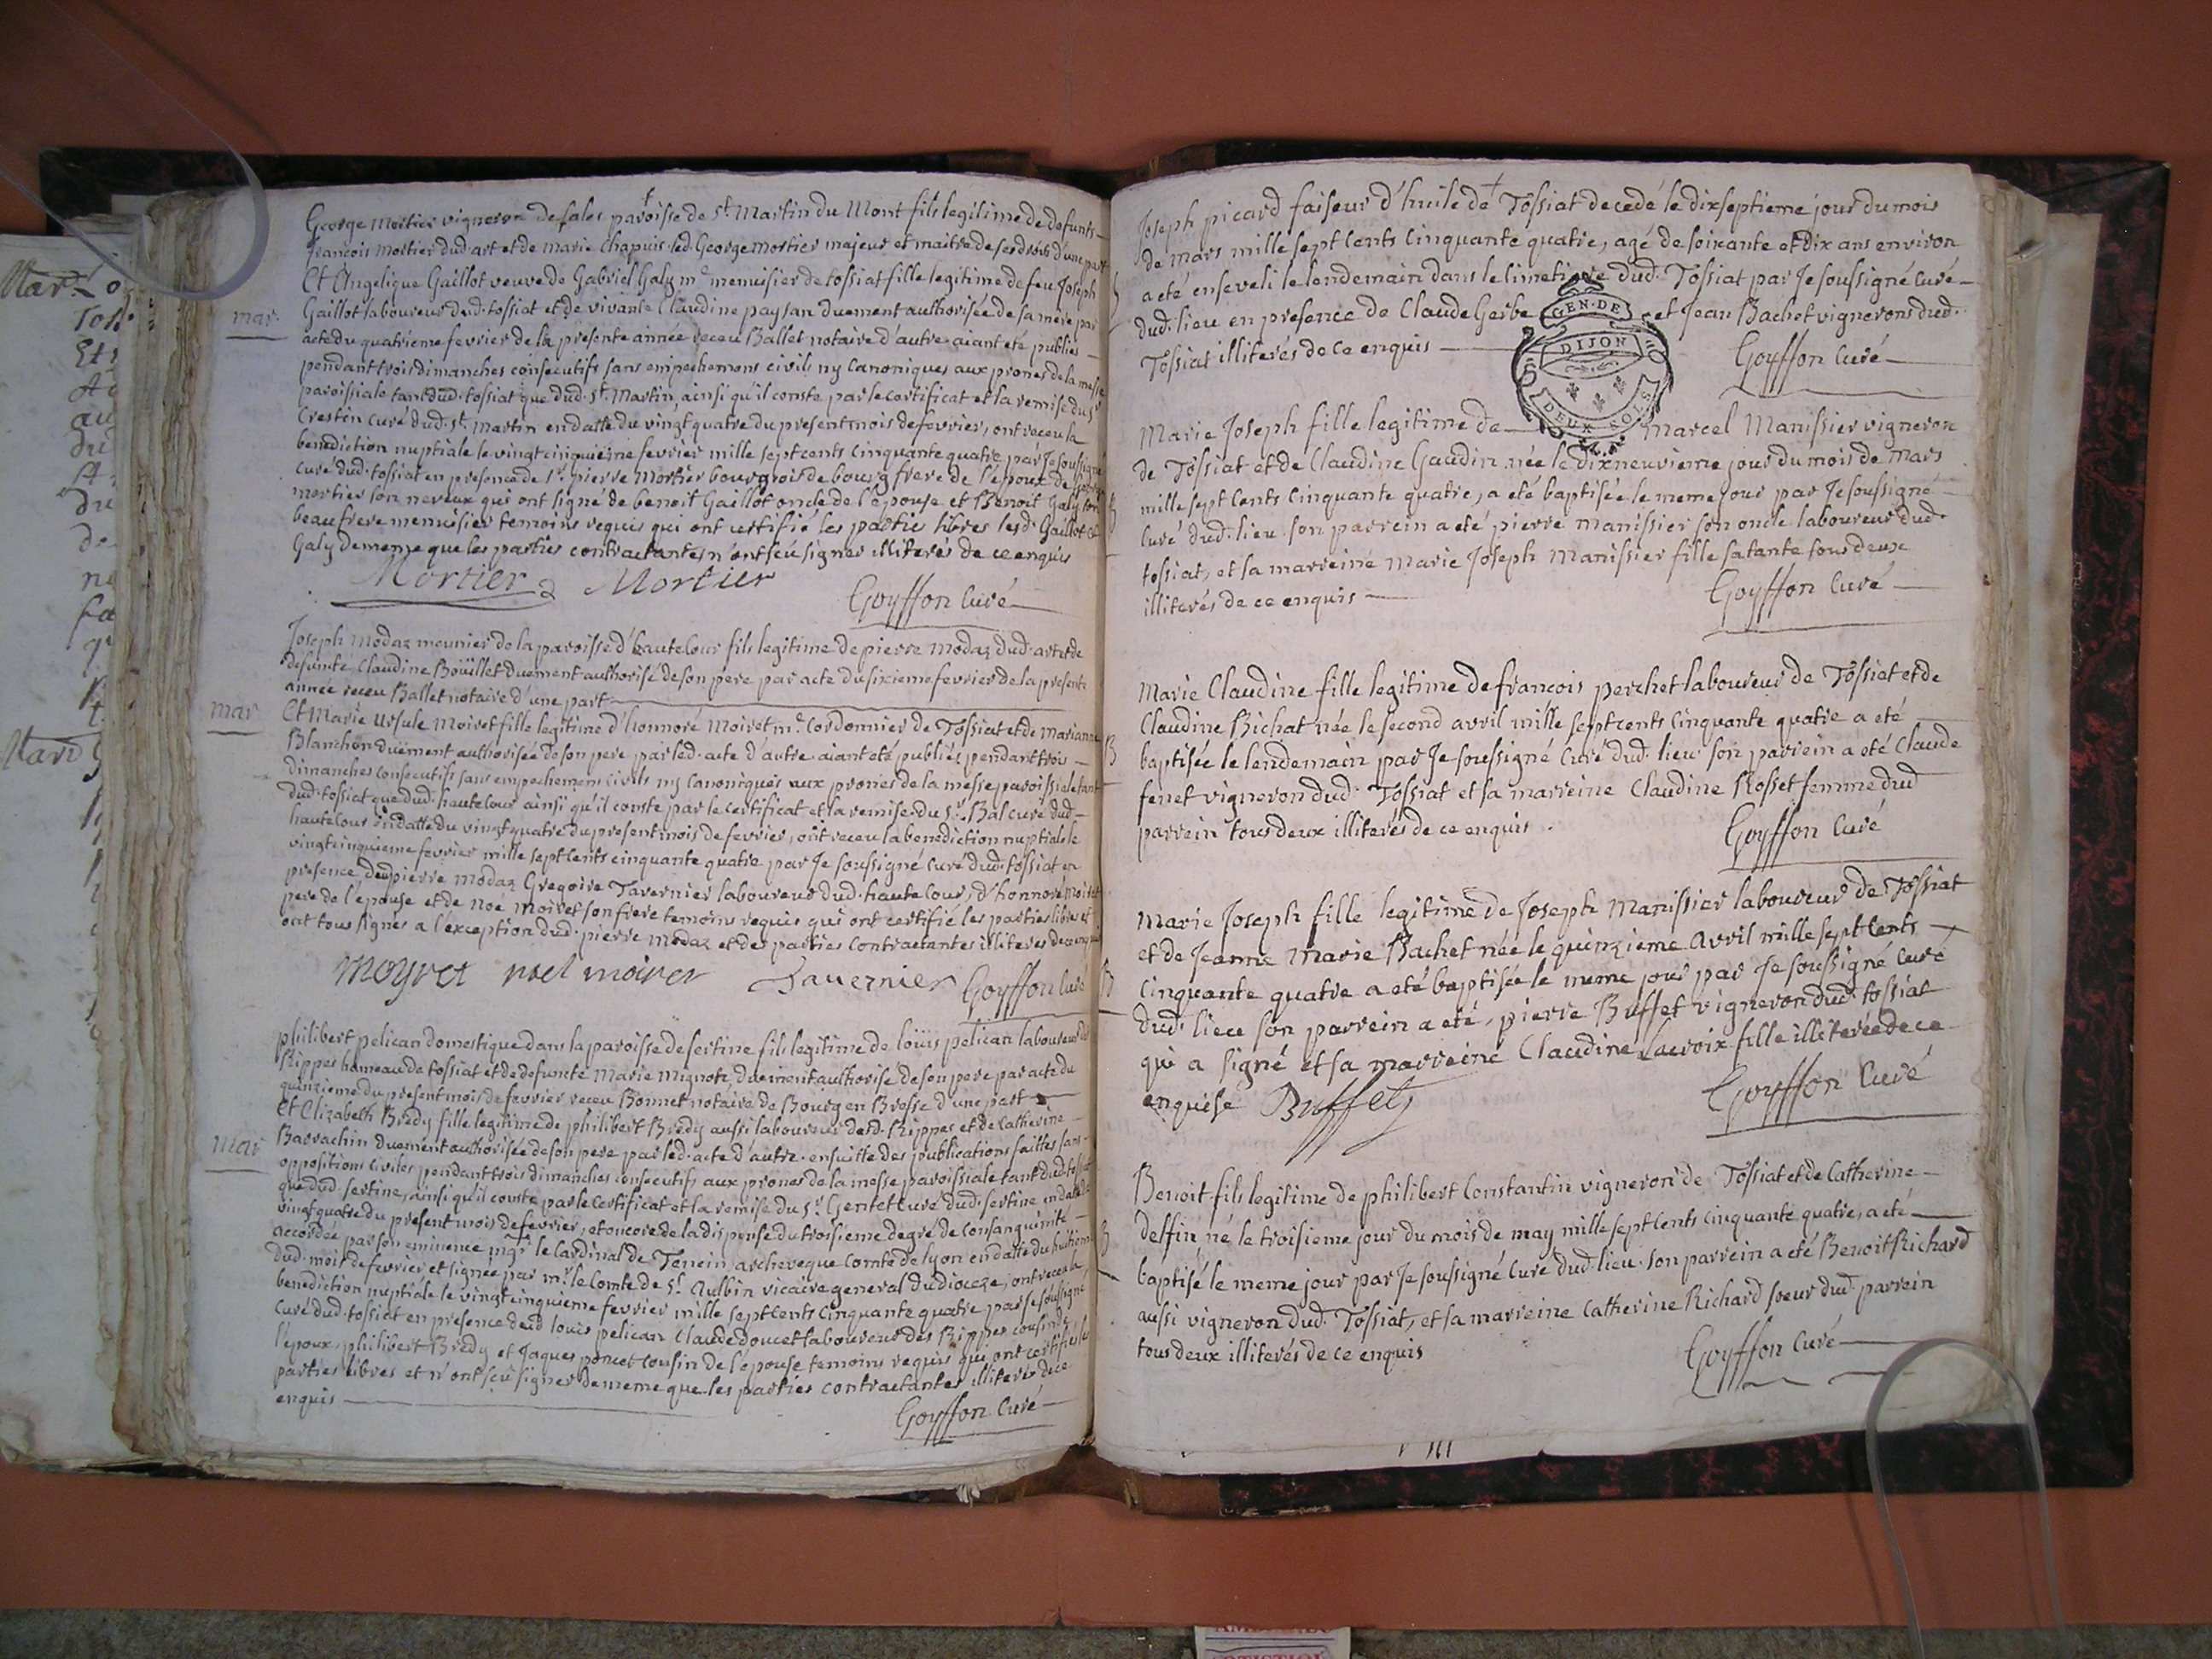 George Mortier vigneron de sales paroisse de St. Martin du Mont fils legitime de defunts
francois Mortier dud. art et de Marie Chapuis led. George mortier majeur et maitre de ses droits d'une part
Et Angelique Gaillot veuve de Gabriel Galy me menuisier de tossiat fille legitime de feu Joseph
mar.
Gaillot laboureur dud. tossiat et de vivante Claudine paysan duement authorisée de sa mere par
acte du quatrième fevrier de la presente année receu Ballet notaire d'autre aiant eté publiés
pendant trois dimanches consecutifs sans empechemens civils ny canoniques aux prones de la messe
paroissiale tant dud. tossiat que dud. St. Martin, ainsi qu'il conste par le certificat et la remise du Sr
Crestin curé dud. St. Martin en datte du vingt quatre du present mois de fevrier, ont receu la
benediction nuptiale le vingt cinquieme fevrier mille sept cents cinquante quatre par Je soussigné
curé dud. tossiat en presence de Sr. pierre Mortier bourgeois de bourg frere de l'epoux de
mortier son neveux qui ont signé de benoit Gaillot oncle de l'epouse et Benoit Galy son
beaufrere menuisier temoins requis qui ont certifié les parties libres lesd. Gaillot et
Galy de meme que les parties contractantes n'ont sçu signer illiterés de ce enquis
Mortier Mortier
Goyffon Curé
Joseph Modaz meunier de la paroisse d'hautecour fils legitime de pierre Modaz dud. art et de
defunte Claudine Boüillet duement authorisé de son pere par acte du sixieme fevrier de la presente
année receu Ballet notaire d'une part
mar
Et Marie Ursule Moiret fille legitime d'honnoré Moiret me. Cordonnier de Tossiat et de Marianne
Blanchon duement authorisée de son pere par led. acte d'autre aiant eté publiés pendant trois
dimanches consecutifs sans empechemens civils ny canoniques aux prones de la messe paroissiale tant
dud. tossiat que dud. hautecour ainsi qu'il conste par le certificat et la remise du Sr. Bal curé dud.
hautecour en datte du vingt quatre du present mois de fevrier, ont receu la benediction nuptiale le
vingt cinquieme fevrier mille sept cents cinquante quatre par Je soussigné curé dud. tossiat en
presence dud pierre modaz Gregoire Tavernier laboureur dud. hautecour, d'honnoré Moiret
pere de l'epouse et de Noe Moiret son frere temoins requis qui ont certifié les parties libres et
ont tous signés a l'exception dud. pierre Modaz et des parties contractantes illiterés de ce enquis
Moyret noel moiret Tavernier Goyffon Curé
philibert pelican domestique dans la paroisse de sertine fils legitime de loüis pelican laboureur
Rippes hameau de tossiat et de defunte Marie Mignot, duement authorisé de son pere par acte du
quinzieme du present mois de fevrier receu Bonnet notaire de Bourg en Bresse d'une part
Et Elizabeth Bredy fille legitime de philibert Bredy aussi laboureur desd. Rippes et de Catherine
mar
Barrachin duement authorisée de son pere par led. acte d'autre. ensuitte des publications faittes sans
oppositions civiles pendant trois dimanches consecutifs aux prones de la messe paroissiale tant dud. tossiat
que dud. sertine, ainsi qu'il conste par le certificat et la remise du Sr. Gentet curé dud. sertine en datte
vingt quatre du present mois de fevrier, et encore de la dispense du troisieme degré de consanguinité
accordée par son eminence mgr. le Cardinal de Tencin archeveque comte de lyon en datte du huitieme
dud. mois de fevrier et signée par mr. le Comte de St. Aulbin vicaire general du dioceze, ont receu la
benediction nuptiale le vingt cinquieme fevrier mille sept cents cinquante quatre par Je soussigné
curé dud. tossiat en presence dud louis pelican Claude doucet laboureur des Rippes cousin de
l'epoux, philibert Bredy et Jaques poncet cousin de l'epouse temoins requis qui ont certifié les
parties libres et n'ont sçu signer de meme que les parties contractantes illiterés de ce
enquis
Goyffon Curé
Joseph picard faiseur d'huile de Tossiat decedé le dixseptieme jour du mois
de mars mille sept cents cinquante quatre, agé de soixante et dix ans environ
a eté enseveli le lendemain dans le simetiere dud. Tossiat par Je soussigné Curé
dud. lieu en presence de Claude Gerbe et Jean Bachet vignerons dud.
Tossiat illiterés de ce enquis
GEN. DE
DIJON
DEUX SOLS
Goyffon Curé
Marie Joseph fille legitime de Marcel Manissier vigneron
de Tossiat et de Claudine Gaudin née le dixneuvieme jour du mois de mars
mille sept cents cinquante quatre, a eté baptisée le meme jour par Je soussigné
curé dud. lieu son parrein a eté pierre manissier son oncle laboureur dud.
tossiat, et sa marreine Marie Joseph Manissier fille sa tante tous deux
illiterés de ce enquis
Goyffon Curé
Marie Claudine fille legitime de francois perchet laboureur de Tossiat et de
Claudine Bichat née le second avril mille sept cents cinquante quatre a eté
B
baptisée le lendemain par Je soussigné Curé dud. lieu son parrein a eté Claude
fenet vigneron dud. Tossiat et sa marreine Claudine Rosset femme dud
parrein tous deux illiterés de ce enquis.
Goyffon Curé
Marie Joseph fille legitime de Joseph Manissier laboureur de Tossiat
et de Jeanne Marie Bachet née le quinzieme Avril mille sept cents
B
cinquante quatre a eté baptisée le meme jour par Je soussigné Curé
dud. lieu son parrein a eté, pierre Buffet vigneron dud. tossiat
qui a signé et sa marreine Claudine Lacroix fille illiterée de ce
enquise Buffet
Goyffon Curé
Benoit fils legitime de philibert Constantin vigneron de Tossiat et de Catherine
B
delfin né le troisieme jour du mois de may mille sept cents cinquante quatre, a eté
baptisé le meme jour par Je soussigné Curé dud. lieu. son parrein a eté Benoit Richard
aussi vigneron dud. Tossiat, et sa marreine Catherine Richard soeur dud. parrein
tous deux illiterés de ce enquis
Goyffon Curé